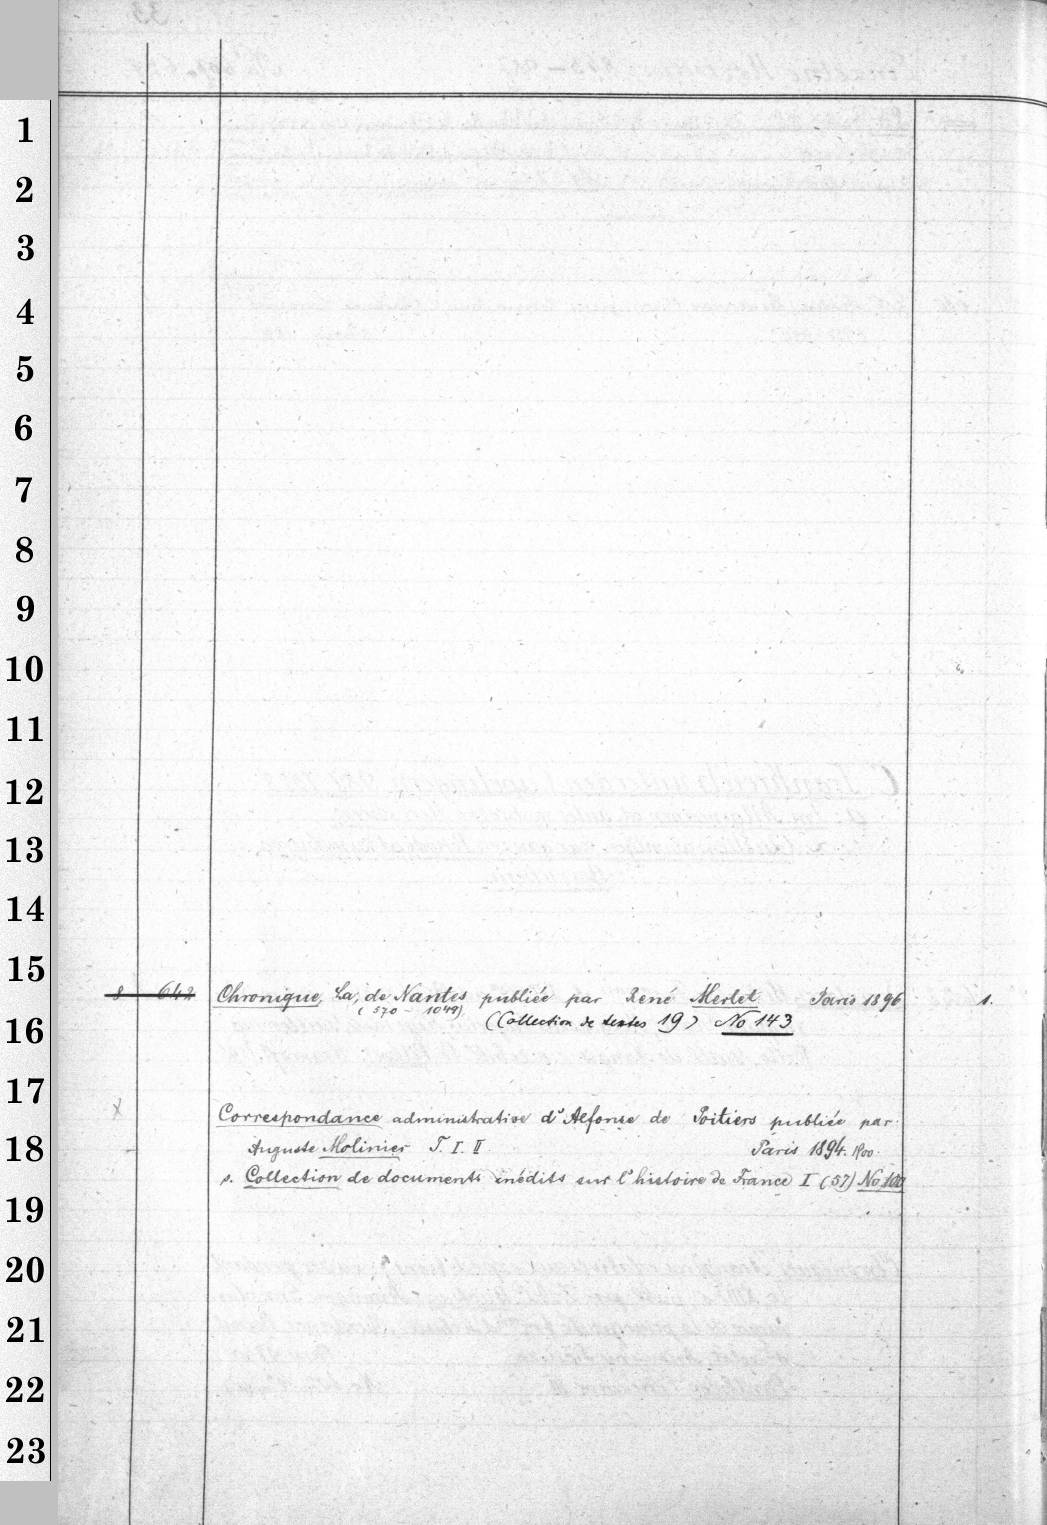 1
2
3
4
5
6
7
8
9
10
11
12
13
14
15
8 642 Chronique, La, de Nantes publiée par René Merlet Paris 1896 1.
(570 - 1049)
16
(Collection de textes 19) No 143
17
X
Correspondance administrative d'Alfonse de Poitiers publiée par
18
Auguste Molinier T. I. II Paris 1894. 1900.
s. Collection de documents inédits sur l'histoire de France I (57) No 100
19
20
21
22
23